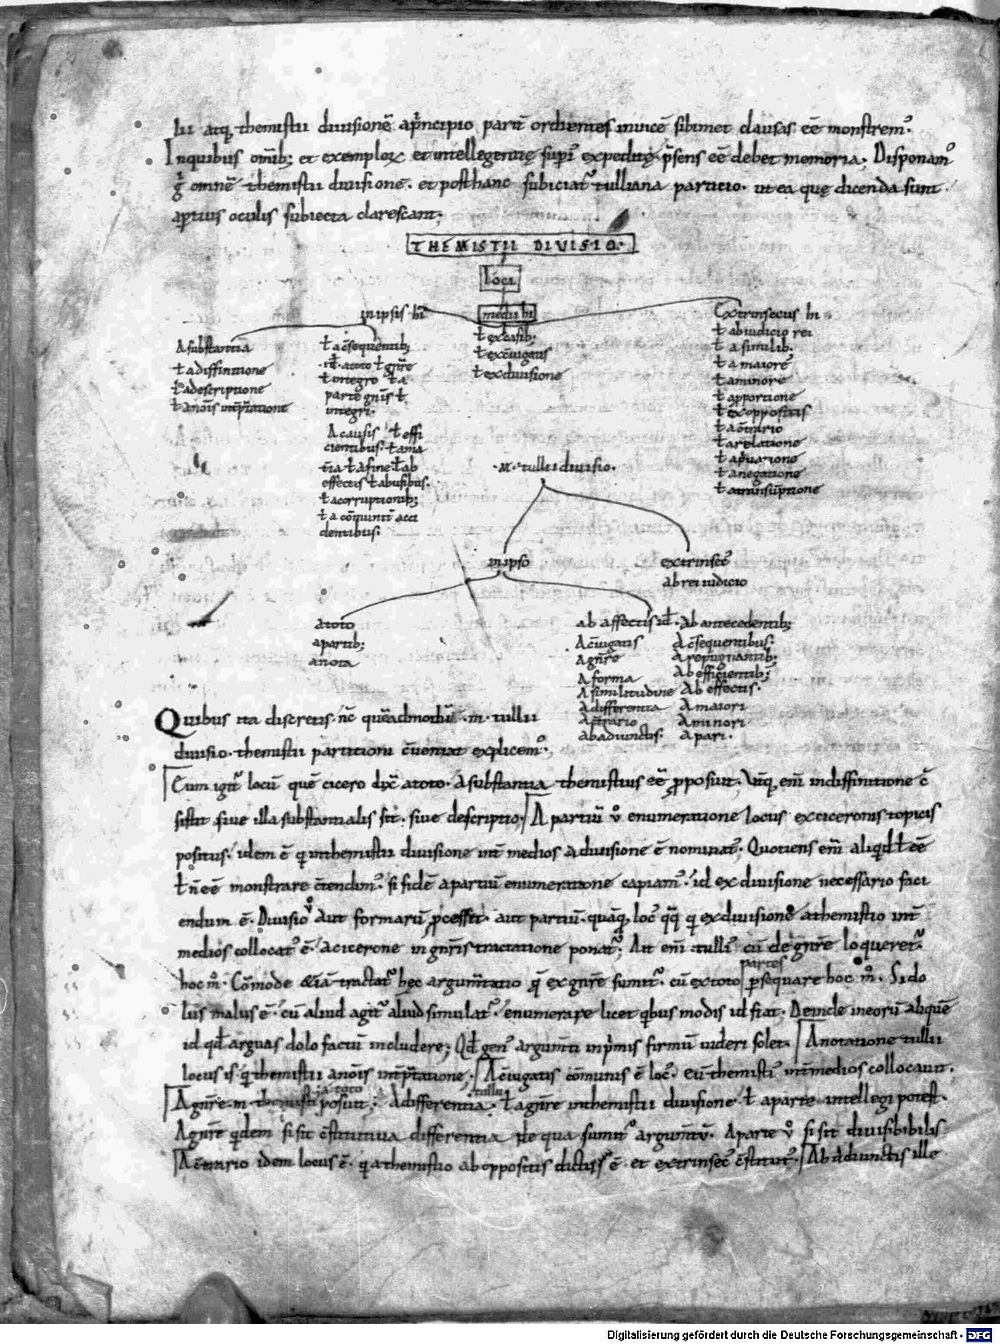 lii atq; themistii diuisionē aṗncipio partiū ordientes inuicē sibimet clausas eē monstrem᾽.
Inquibus omīb; et exemploꝝ et intellegentię suꝑi᾽ expeditę p̄sens eē debet memoria. Disponam᾽
g̊ omnē themistii diuisionē. et posthanc subiciat᾽ tulliana particio. ut ea quę dicenda sunt
aptius oculis subiecta clarescant;
THEMISTII DIUISIO.
loci
inipsis hi
medii hi
Extrinsecus hi
Asubstantia
ł adiffinitione
ł adescriptione
ł anoīs int̄p̄tatione
ł ac̄sequentib;
.id. atoto ł gn̄re
ł integro ł a
parte gn̄is ł
integri.
Acausis ł effi
cientibus. ł ama
t̄ia ł afine ł ab
effectis ł abusibus.
ł acorruptionib;
ł a cōmunit᾽ acci
dentibus.
ł excasib;
ł exc̄iugatis
ł exdiuisione
ł abiudicio rei
ł a similib.
ł a maiore
ł aminore
ł aꝓportione
ł exoppositis
ł ac̄trario
ł arelatione
ł apriuatione
ł anegatione
ł atransūptione
.M. tullii diuisio.
inipso
extrinsec᾽
abrei iudicio
atoto
apartib;
anota
ab affectis id.
Ac̄iugatis
Agn̄re
Aforma
Asimilitudine
Adifferentia
Ac̄trario
abadiunctis.
Ab antecedentib;
Ac̄sequentibus.
Arepugnantib;
Ab efficientib;
Ab effectis.
Amaiori
Aminori
Apari.
Quibus ita discretis. n̄c quēadmodū .m. tullii
diuisio. themistii partitioni c̄ueniat explicem᾽;
Cum igit᾽ locū quē cicero dix̄ atoto. Asubstantia themistius eē ꝓposuit. Vtq; em̄ indiffinitione c̄
sistit siue illa substantialis sit. siue descriptio. Apartiū ů enumeratione locus exciceronis topicis
positus. idem ē q inthemistii diuisione int̄ medios adiuisione ē nominat᾽; Quotiens em̄ aliqd ł eē
ł n̄ eē monstrare c̄tendim᾽. si fidē apartiū enumeratione capiam᾽. id exdiuisione necessario faci
endum ē. Diuisio ů aut formarū ꝓcessit. aut partiū. quaꝓp̄ loc᾽ qq̄ q exdiuisione athemistio int̄
medios collocat᾽ ē. acicerone in gn̄is tractatione ponat᾽; Ait em̄ tulli᾽ cū degn̄re loqueret᾽
hoc m᾽. Cōmode &iā tractat᾽ hęc argum̄tatio q̄ exgn̄re sumit᾽. cū extoto partes p̄sequare hoc m᾽. Si do
lus malus ē. cū aliud agit᾽ aliud simulat᾽. enumerare licet qbus modis id fiat. Deinde ineorū aliquē
id qd arguas dolo factū includere; Qd gen᾽ argum̄ti inp̄mis firmū uideri solet. Anotatione tullii
locus is. q themistii anoīs int̄p̄tatione. Ac̄iugatis cōmunis ē loc᾽. eū themisti᾽ int̄ medios collocauit.
Agn̄re .m. themisti a toto posuit. Adifferentia tullii. ł agn̄re inthemistii diuisione ł aparte intellegi potest.
Agn̄re qdem si sit c̄stitutiua differentia de qua sumit᾽ argum̄tū. Aparte ů si sit diuisibibilis
Ac̄trario idem locus ē. q athemistio ab oppositis dictus ē. et extrinsec᾽ c̄stitut᾽. Ab adiunctis ille